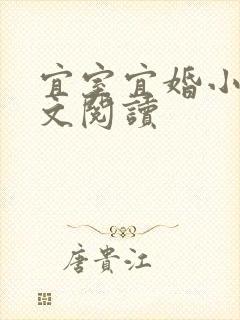 宜室宜婚小
文閱讀
唐貴江